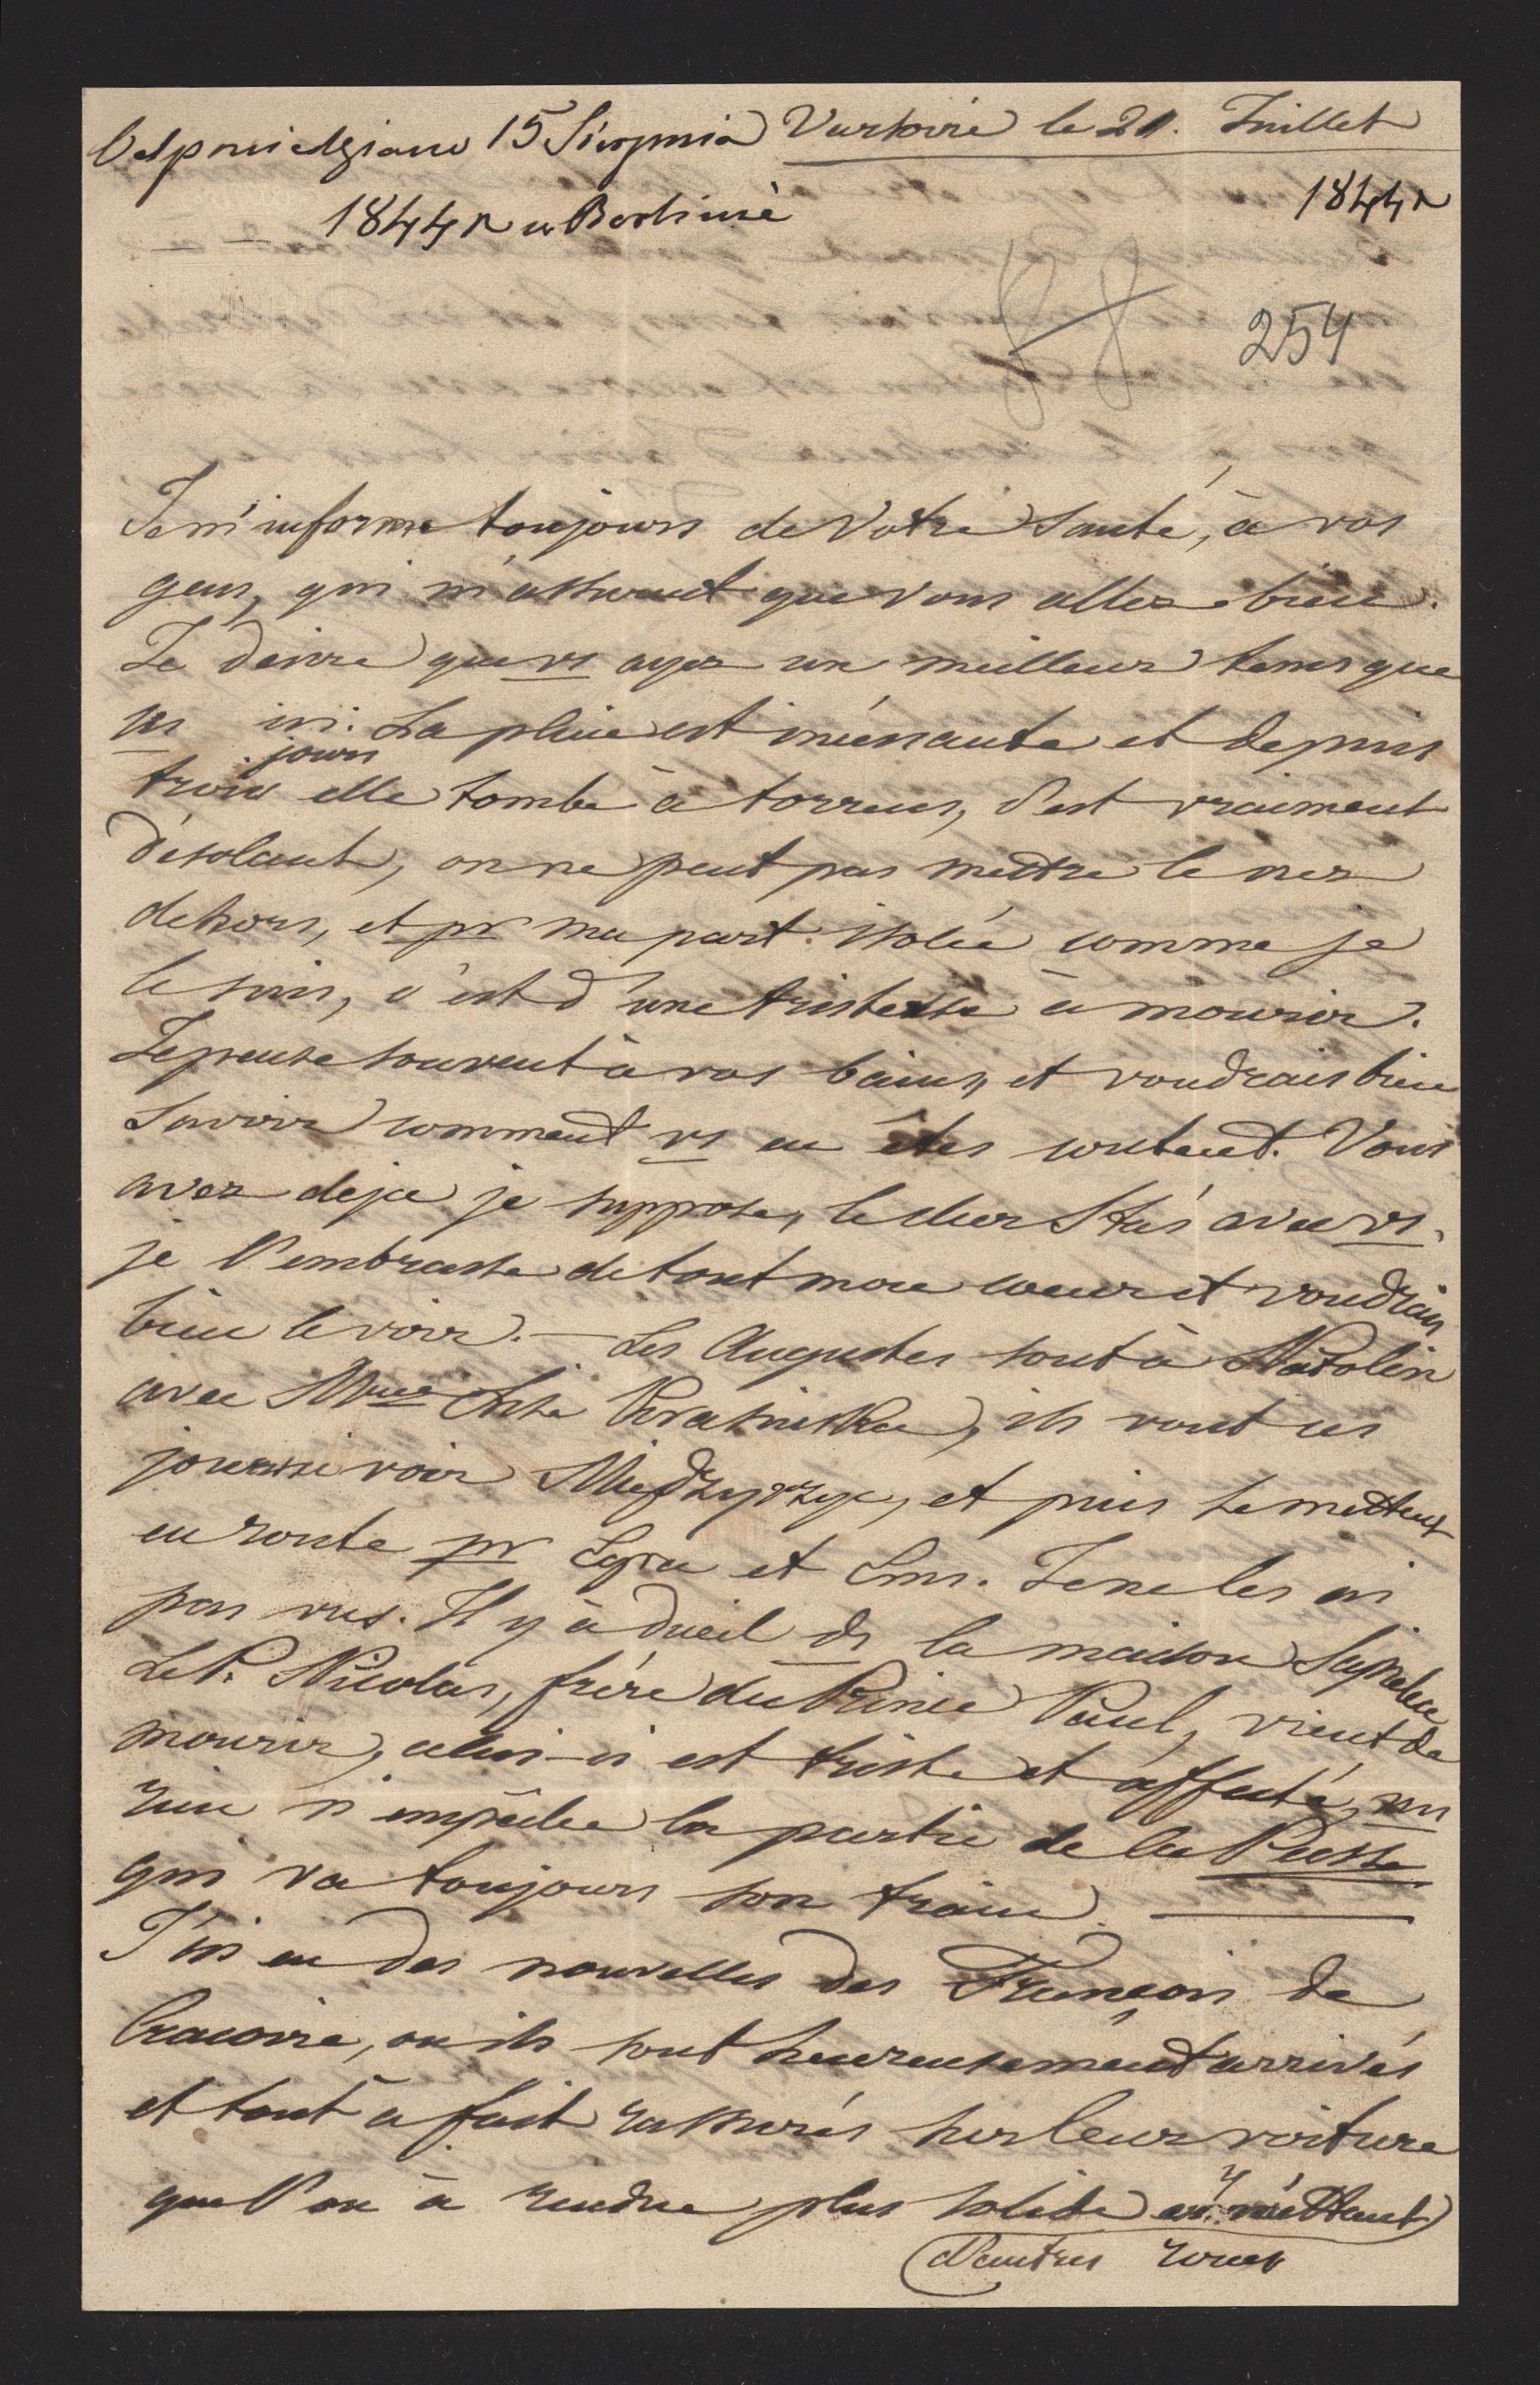 Odpowiedziano 15 Sierpnia Varsovie le 21. Juillet
1844 r w Berlinie 1844 r
254
Je m'informe toujours de Votre santé, à vos
gens, qui m'assurent que vous allez bien.
Je désire que vs ayez un meilleur tems que
ns ici. La pluie est incessante et depuis
jours
trois elle tombe à torrens, c'est vraiment
désolant, on ne peut pas mettre le nez
dehors, et pr ma part isolée comme je
le suis, c'est d'une tristesse à mourir.
Je pense souvent à vos bains, et voudrais bien
savoir comment vs en êtes content. Vous
avez deja je suppose, le cher Stas avec vs,
je l'embrasse de tout mon coeur et voudrais
bien le voir. — Les Augustes sont à Natolin
avec Mme Krasinska, ils vont ces
jours ci voir Międzyrzyc, et puis se mettent
en route pr Egra et Ems. Je ne les ai
pas vus. Il y à dueil ds la maison Sapieha
Le P. Nicolas, frère du Prince Paul, vient de
mourir, celui-ci est triste et affecté, ms
rien n'empêche la partie de la
qui va toujours son train. —
J'ai eu des nouvelles des François de
Cracovie, ou ils sont heureusement arrivés
et tout à fait rassurés sur leur voiture
que l'on à rendue plus solide en y mettant
d'autres roues